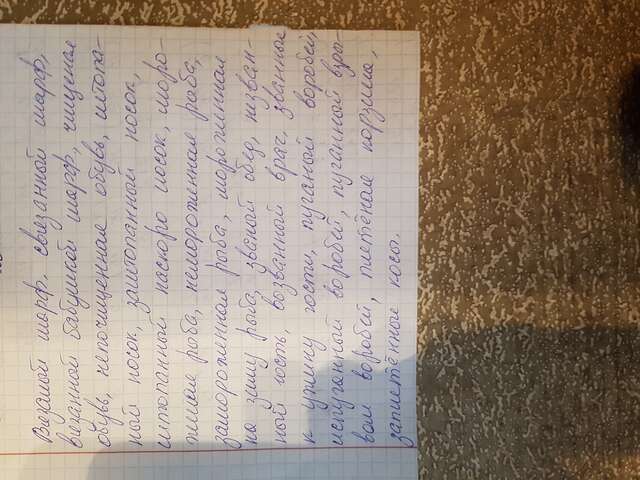 Вязаный шарф, связанный шарф,
вязанной бабушкой шарф, чищеная
обувь, непочищенная обувь, штопа-
ный носок, заштопанный носок,
штопанный наскоро носок, моро-
женая рыба, немороженная рыба,
замороженная рыба, мороженная
на зиму рыба, званый обед, незван-
ный гость, вызванный врач, званные
к ужину гости, пуганый воробей,
испуганный воробей, пуганный взры-
вом воробей, плетёная корзина,
заплетённые косы.